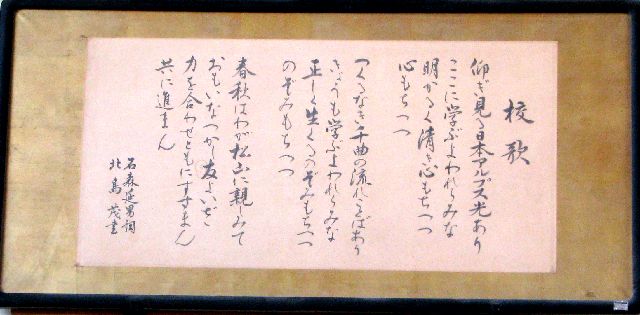 校歌
仰ぎ見る日本アルプス光あり
ここに学ぶよわれらみな
明かるく清き心もちつつ
心もちつつ
つくるなき千曲の流れそばあり
きょうも学ぶよわれらみな
正しく生くるのぞみもちつつ
のぞみもちつつ
春秋はわが松山に親しみて
おもいなつかし友よいざ
力を合わせともにすすまん
共に進まん
石森延男詞
北島茂書